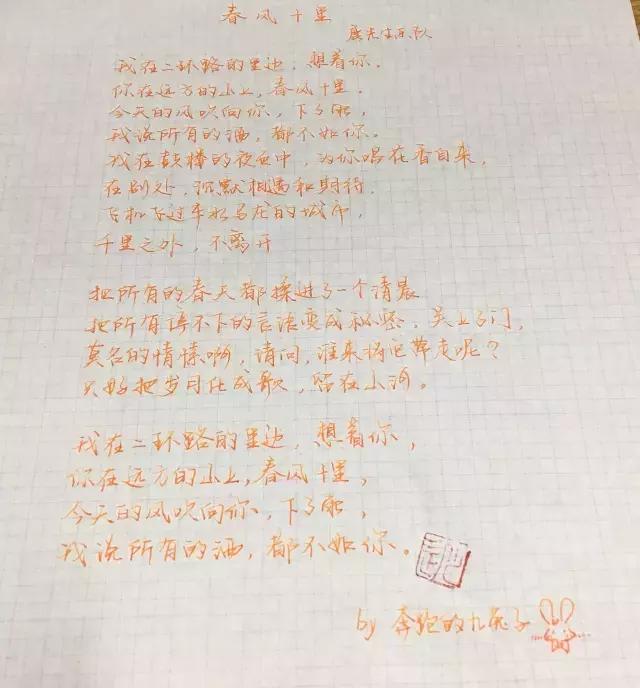 春风十里
鹿先生乐队
我在二环路的里边，想着你，
你在远方的山上，春风十里。
今天的风吹向你，下了雨，
我说所有的酒，都不如你。
我在鼓楼的夜色中，为你唱花香自来，
在别处，沉默相遇和期待，
飞机飞过车水马龙的城市，
千里之外，不离开
把所有的春天都揉进了一个清晨
把所有停不下的言语变成秘密，关上了门，
莫名的情愫啊，请问，谁来将它带走呢？
只好把岁月化成歌，留在山河。
我在二环路的里边，想着你，
你在远方的山上，春风十里，
今天的风吹向你，下了雨，
我说所有的酒，都不如你。
by 奔跑的九兔子